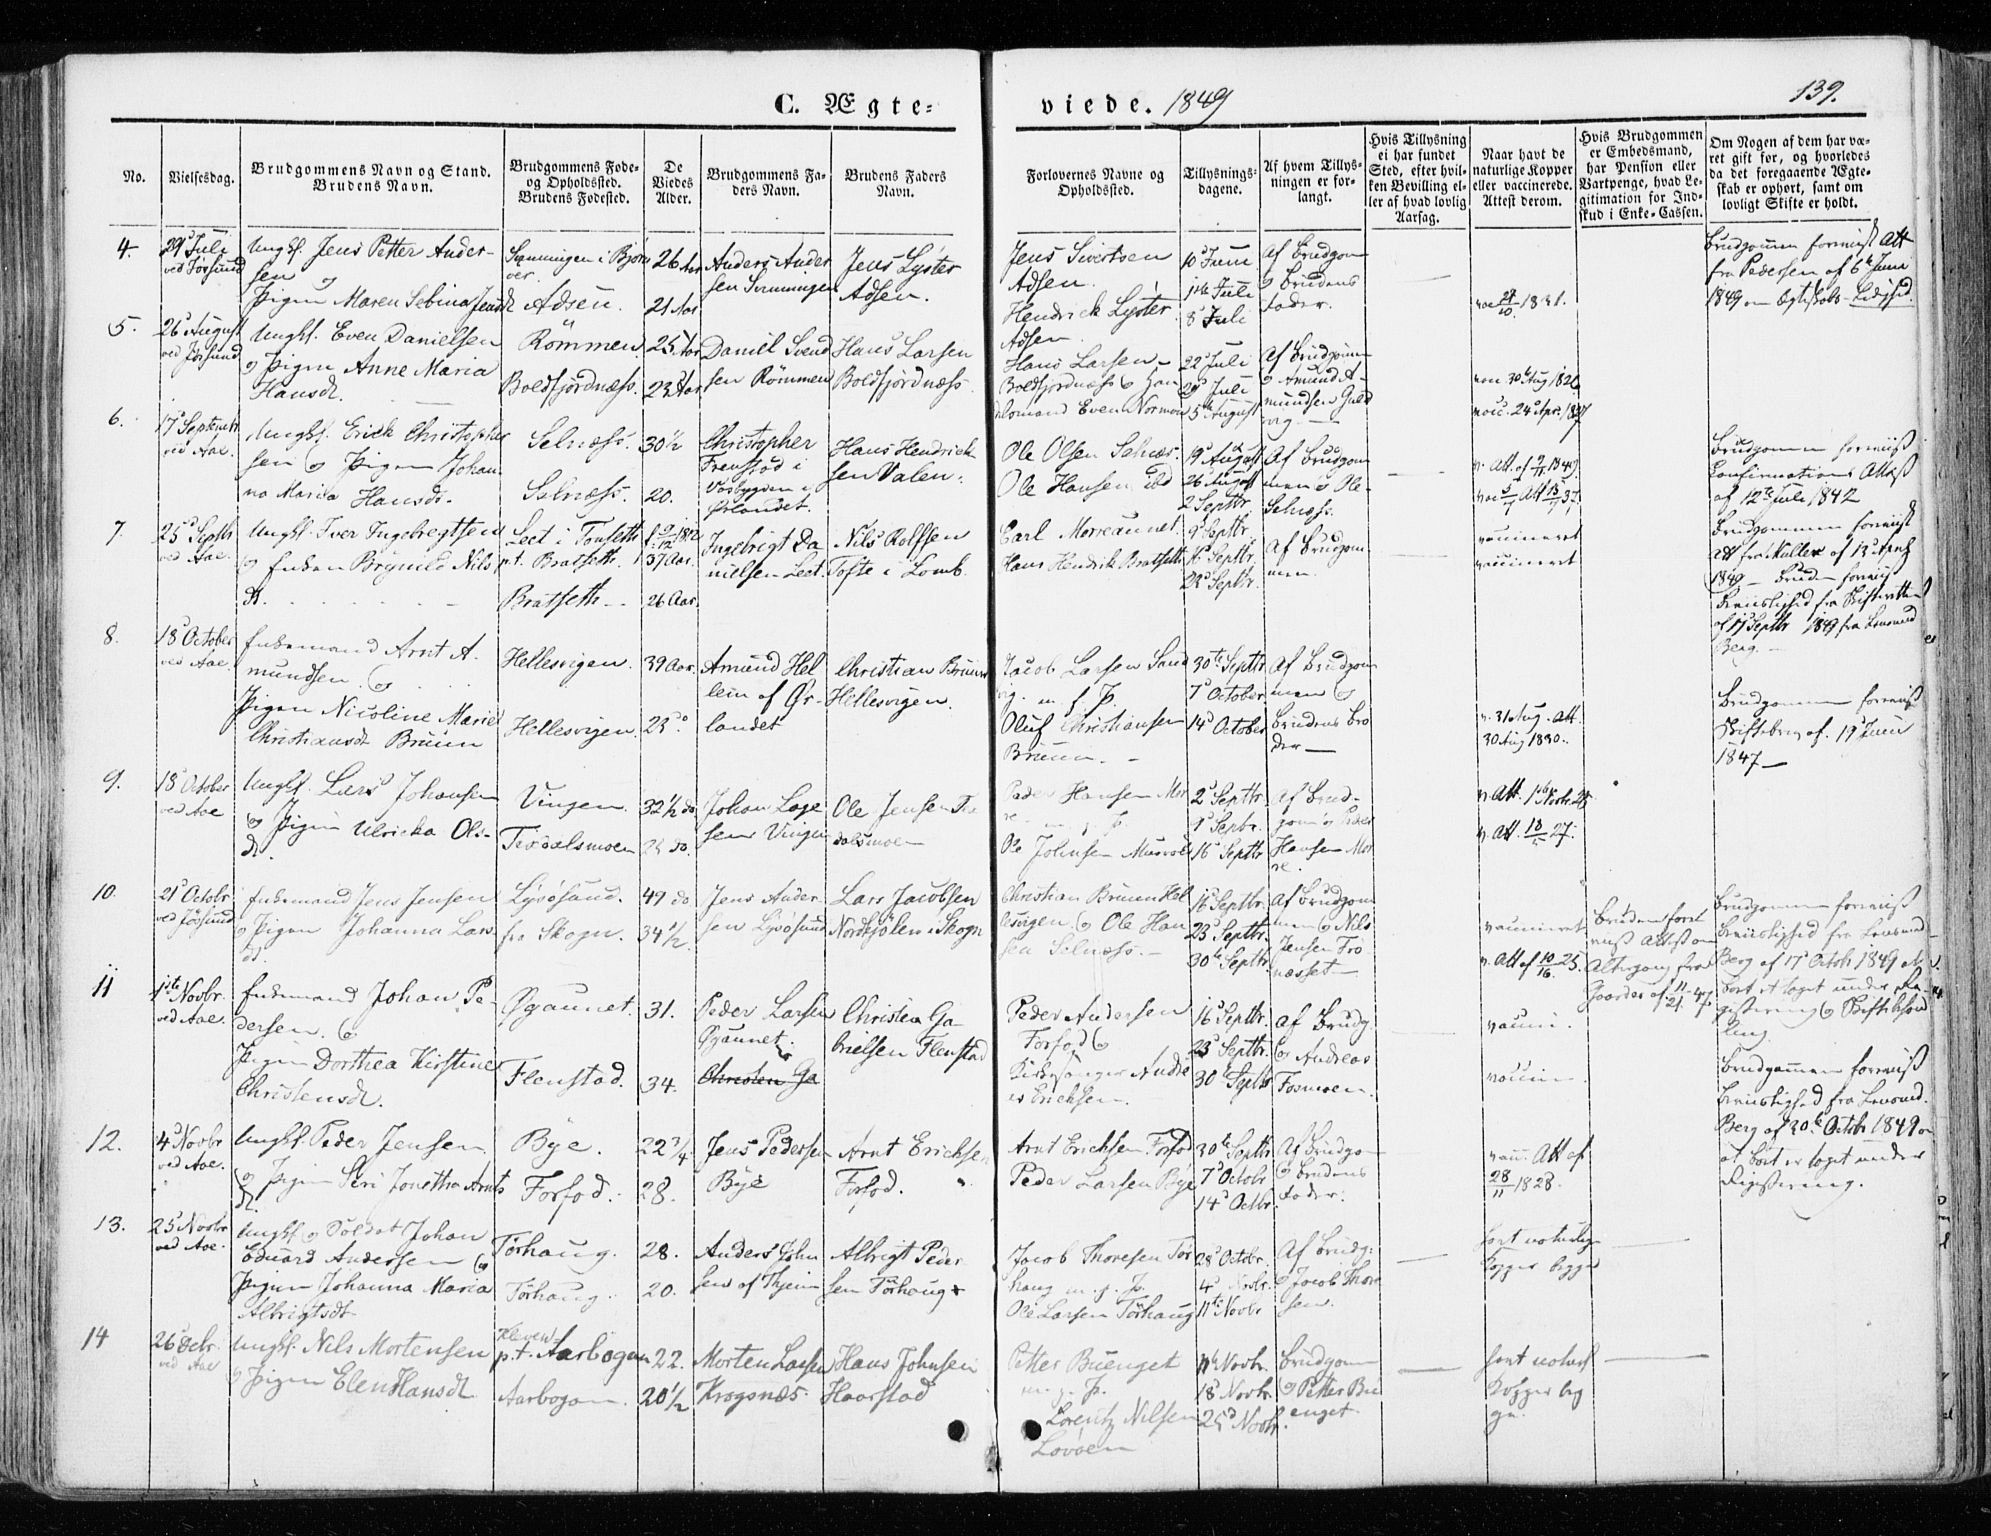 C. Ægte=
viede. 1849
139.
No.
Vielsesdag.
Brudgommens Navn og Stand.
Brudens Navn.
Brudgommens Føde=
og Opholdssted.
Brudens Fødested.
De
Viedes
Alder.
Brudgommens Fa=
ders Navn.
Brudens Faders
Navn.
Forlovernes Navne og
Opholdssted.
Tillysnings=
dagene.
Af hvem Tillys=
ningen er for=
langt.
Hvis Tillysning
ei har fundet
Sted, efter hvil=
ken Bevilling el=
ler af hvad lovlig
Aarsag.
Naar havt de
naturlige Kopper
eller vaccinerede.
Attest derom.
Hvis Brudgommen
er Embedsmand,
har Pension eller
Vartpenge, hvad Le=
gitimation for Ind=
skud i Enke=Cassen.
Om Nogen af dem har væ=
ret gift før, og hvorledes
da det foregaaende Ægte=
skab er ophørt, samt om
lovligt Skifte er holdt.
4.
29 Juli
ved Jøssund
Ungkl. Jens Petter Ander-
sen og
Pigen Maren Sebina Jensdt
Adsen
26 Aar
21 Aar
Anders Ander
sen
Jens Lyster
Adsen.
Jens Sivertsen
Adsen.
Hendrick Lyster
Adsen
10 Juni
1ste Juli
8 Juli
Af Brudgom
o Brudens
Fader.
Brudgommen
fra Pedersen af 6te Juni
1849 om Ægteskabs-Ledighed.
5.
26 August
ved Jøssund
Ungkl. Even Danielsen
o Pigen Anne Maria
Hansdt.
Römmen
Boldfjordnæss.
25 Aar
23 Aar
Daniel Svend
sen Römmen
Hans Larsen
Boldfjordnæss.
Hans Larsen
Boldfjordnæss o
Even Normen
22 Juli
29 Juli
5te August
Af Brudgom
o Amund A-
mundsen
30te Aug 1826
24 Apr. 1827
6.
17 Septembr
ved Aae.
Ungkl. Erick Christopher
sen o Pigen Johan
na Maria Hansdt.
Selnæss.
Selnæss.
30½
20.
Christopher
i
Ørlandet.
Hans Hendrick
sen Valen.
Ole Olsen Selnæs.
Ole Hansen ibd
19 August
26 August
2 Septbr.
Af Brudgom
men o Ole
Selnæss.
Brudgommen
Confirmations Attest
af 12te Juli 1842
7.
25 Septb
ved Aae.
Ungkl. Iver Ingebrigtsen
o Enken Nils
dt.
Leet i Tonseth
p.t. Bratseth.
Bratseth
37 Aar.
26 Aar.
Ingebrigt Da
nielsen Leet
Nils Rolfsen
Tofte i Lomb.
Carl Moreaunet.
Hans Hendrik Bratseth
9 Septbr.
16 Septbr.
23 Septbr.
Af Brudgom
men.
vaccineret
vaccineret
Brudgommen
Att fra Muller af 13 April
1849
af 17 Septbr 1849 fra Lensmd
Berg.
8.
18 October
ved Aae.
Enkemand Arnt A.
mundsen. o
Pigen Nicoline Marie
Christiansdt Bruun
Hellesvigen.
Hellesvigen
39 Aar.
23 do
Amund Hel
lem af Ør-
landet
Christian Bruun
Hellesvigen.
Jacob Larsen Sand
vig. m. f. P.
Oluf Christiansen
Bruun.
30te Septbr.
7 October.
14 October
Af Brudgom
men o
Brudens Bro
der
v. 31 Aug. Att.
30 Aug 1830.
Brudgommen
af. 19 Juni
1847
9.
18 October
ved Aae
Ungkl. Lars Johansen
o Pigen Ulricka Ols
dt.
Vingen.
Trödalsmoen
32½ do
Johan Lage
sen Vingen
Ole Jensen Trö
dalsmoen
Peder Hansen Mor
re
Ole Johnsen
2 Septbr
9 Septbr.
16 Septbr
Af Brud-
gom o Peder
Hansen Mor
re.
v. Att. 18/ 27.
10.
21 Octobr
ved Jøssund
Enkemand Jens Jensen
o Pigen Johanna Lars
dt.
Lysösund.
fra Skogn.
49 do
34½
Jens Ander
sen Lysösund
Lars Jacobsen
Nordkjölen i Skogn
Christian Bruun Hel
lesvigen o Ole Han
sen Selnæss.
16 Septbr.
23 Septbr.
30te Septbr
Af Brudgom
men o Nils
Jensen Fro
næsset
vaccineret
v. Att af 10/16 25.
Brudgommen
fra Lensmd
Berg af 17 Octob 1849
11
1ste Novbr.
ved Aae.
Enkemand Johan Pe-
dersen. o
Pigen Dorthea Kirstine
Christensdt.
Øgaunet.
Flenstad.
31.
34.
Peder Larsen
Øgaunet.
Christen Ga
Christen Ga
brielsen Flenstad
Peder Andersen
Forfod o
Kirkesanger Andre
as Ericksen.
16 Septbr.
23 Septbr.
30te Septbr
Af Brudg.
o Andreas
Fosmoen.
vaccin.
vaccin.
Brudgommen
fra Lensmd.
Berg af 30te Octob 1849 o
at Boet er taget under
Registering.
12.
4 Novbr
ved Aae.
Ungkl. Peder Jensen
o Pigen Seri Jonetha Arnts
dt.
Bye.
Forfod.
22¾
28.
Jens Pedersen
Bye
Arnt Ericksen
Forfod.
Arnt Ericksen Forfod
Peder Larsen Bye
30te Septbr
7 Octobr
14 Octbr.
Af Brudgo
o Brudens
Fader.
vacc. Att af
28/11 1828.
13.
25 Novbr
ved Aae.
Ungkl. o Soldat Johan
Eduard Andersen o
Pigen Johanna Maria
Albrigtsdt
Törhaug.
Törhaug.
28.
20.
Anders John
sen af Thjem
Albrigt Peder
sen Törhaug
Jacob Thoresen Tör
haug m. f. P.
Ole Larsen Törhaug
28 Octobr.
4 Novbr.
11te Novbr
Af Brudg:
o Jacob Thore
sen.
havt naturlige
Kopper begge
14
26 Decbr.
ved Aae
Ungkl. Nils Mortensen
o Pigen Elen Hansdt
p.t. Aarbogen
Aarbogen.
22.
20½
Morten Larsen
Krogsnæs
Hans Johnsen
Haarstad
Petter Buenget
m. f. P.
Lorentz Nilsen
Lovöen
11te Novbr.
18 Novbr.
25 Novbr.
Brudgom
o Petter Bu
enget
havt naturl
Kopper beg
ge.